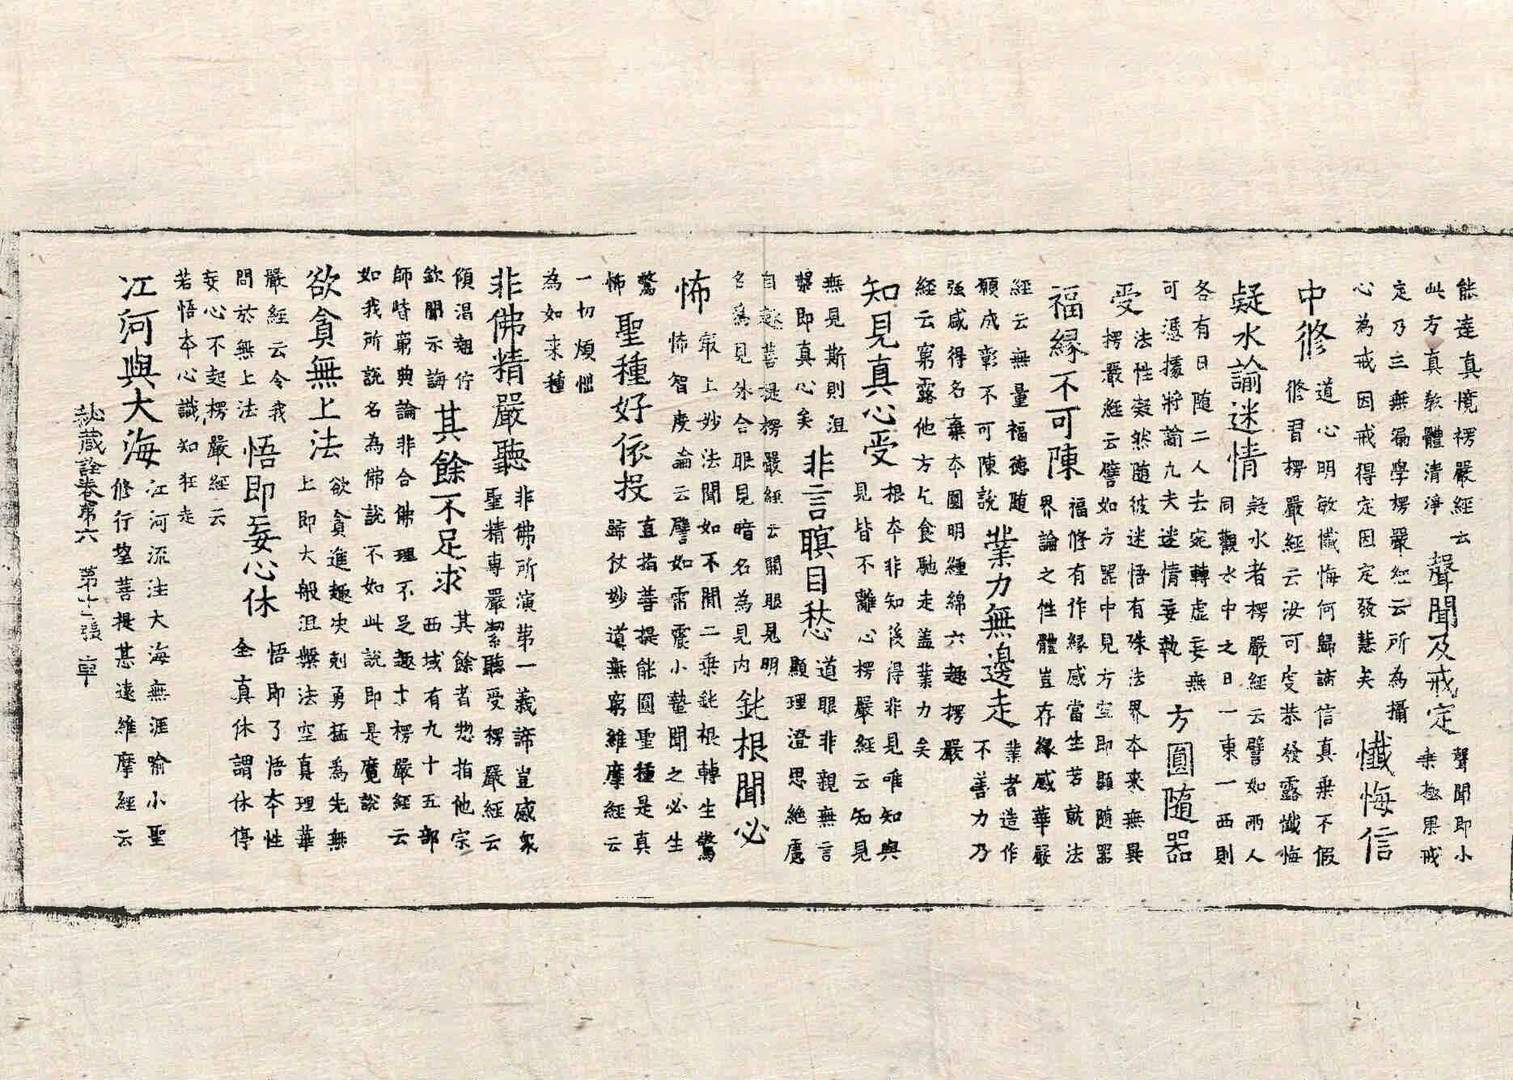 能達真境楞嚴經云
此方真教體清淨
聲聞及戒定
聲聞即小
乘極果戒
定乃三無漏學楞嚴經云所為攝
心為戒因戒得定因定發慧矣
懺悔信
中修
道心明敏懺悔何歸諦信真乘不假
修習楞嚴經云汝可宣恭發露懺悔
疑水諭迷情
疑水者楞嚴經云譬如兩人
同觀水中之日一東一西則
各有日随二人去宛轉虛妄無
可憑據將諭九夫迷情妄執
方圓隨器
受
法性凝然随彼迷悟有殊法界本来無異
楞嚴經云譬如方器中見方空即顯随器
福緣不可陳
福修有作緣感當生若就法
界論之性體豈存緣感華嚴
經云無量福德随
願成彰不可陳說
業力無邊走
業者造作
不善力乃
强咸得名棄本圓明纏綿六趣楞嚴
經云窮露他方乞食馳走盖業力矣
知見真心受
根本非知後得非見唯知與
見皆不離心楞嚴經云知見
無見斯則沮
槃即真心矣
非言瞑目愁
道眼非親無言
顯理澄思絶慮
自趣菩提楞嚴經云開眼見明
名為見外合眼見暗名為見内
鈍根聞必
怖
最上妙法聞如不聞二乘鈍根轉生驚
怖智度論云譬如雷震小蟄聞之必生
驚
怖
聖種好依投
直指菩提能圓聖種是真
歸仗妙道無窮維摩經云
一切煩惱
為如来種
非佛精嚴聽
非佛所演第一義諦豈感衆
聖精專嚴潔聽受楞嚴經云
傾渴翹佇
欽聞示誨
其餘不足求
其餘者惣指他宗
西域有九十五部
師時窮典論非合佛理不足趣士楞嚴經云
如我所說名為佛說不如此說即是魔說
欲貪無上法
欲貪進趣决剋勇猛為先無
上即大般沮槃法空真理華
嚴經云令我
問於無上法
悟即妄心休
悟即了悟本性
全真休謂休停
妄心不起楞嚴經云
若悟本心識知狂走
江河與大海
江河流注大海無涯喻小聖
修行望菩提甚遠維摩經云
祕藏詮卷第六 第十二張 章